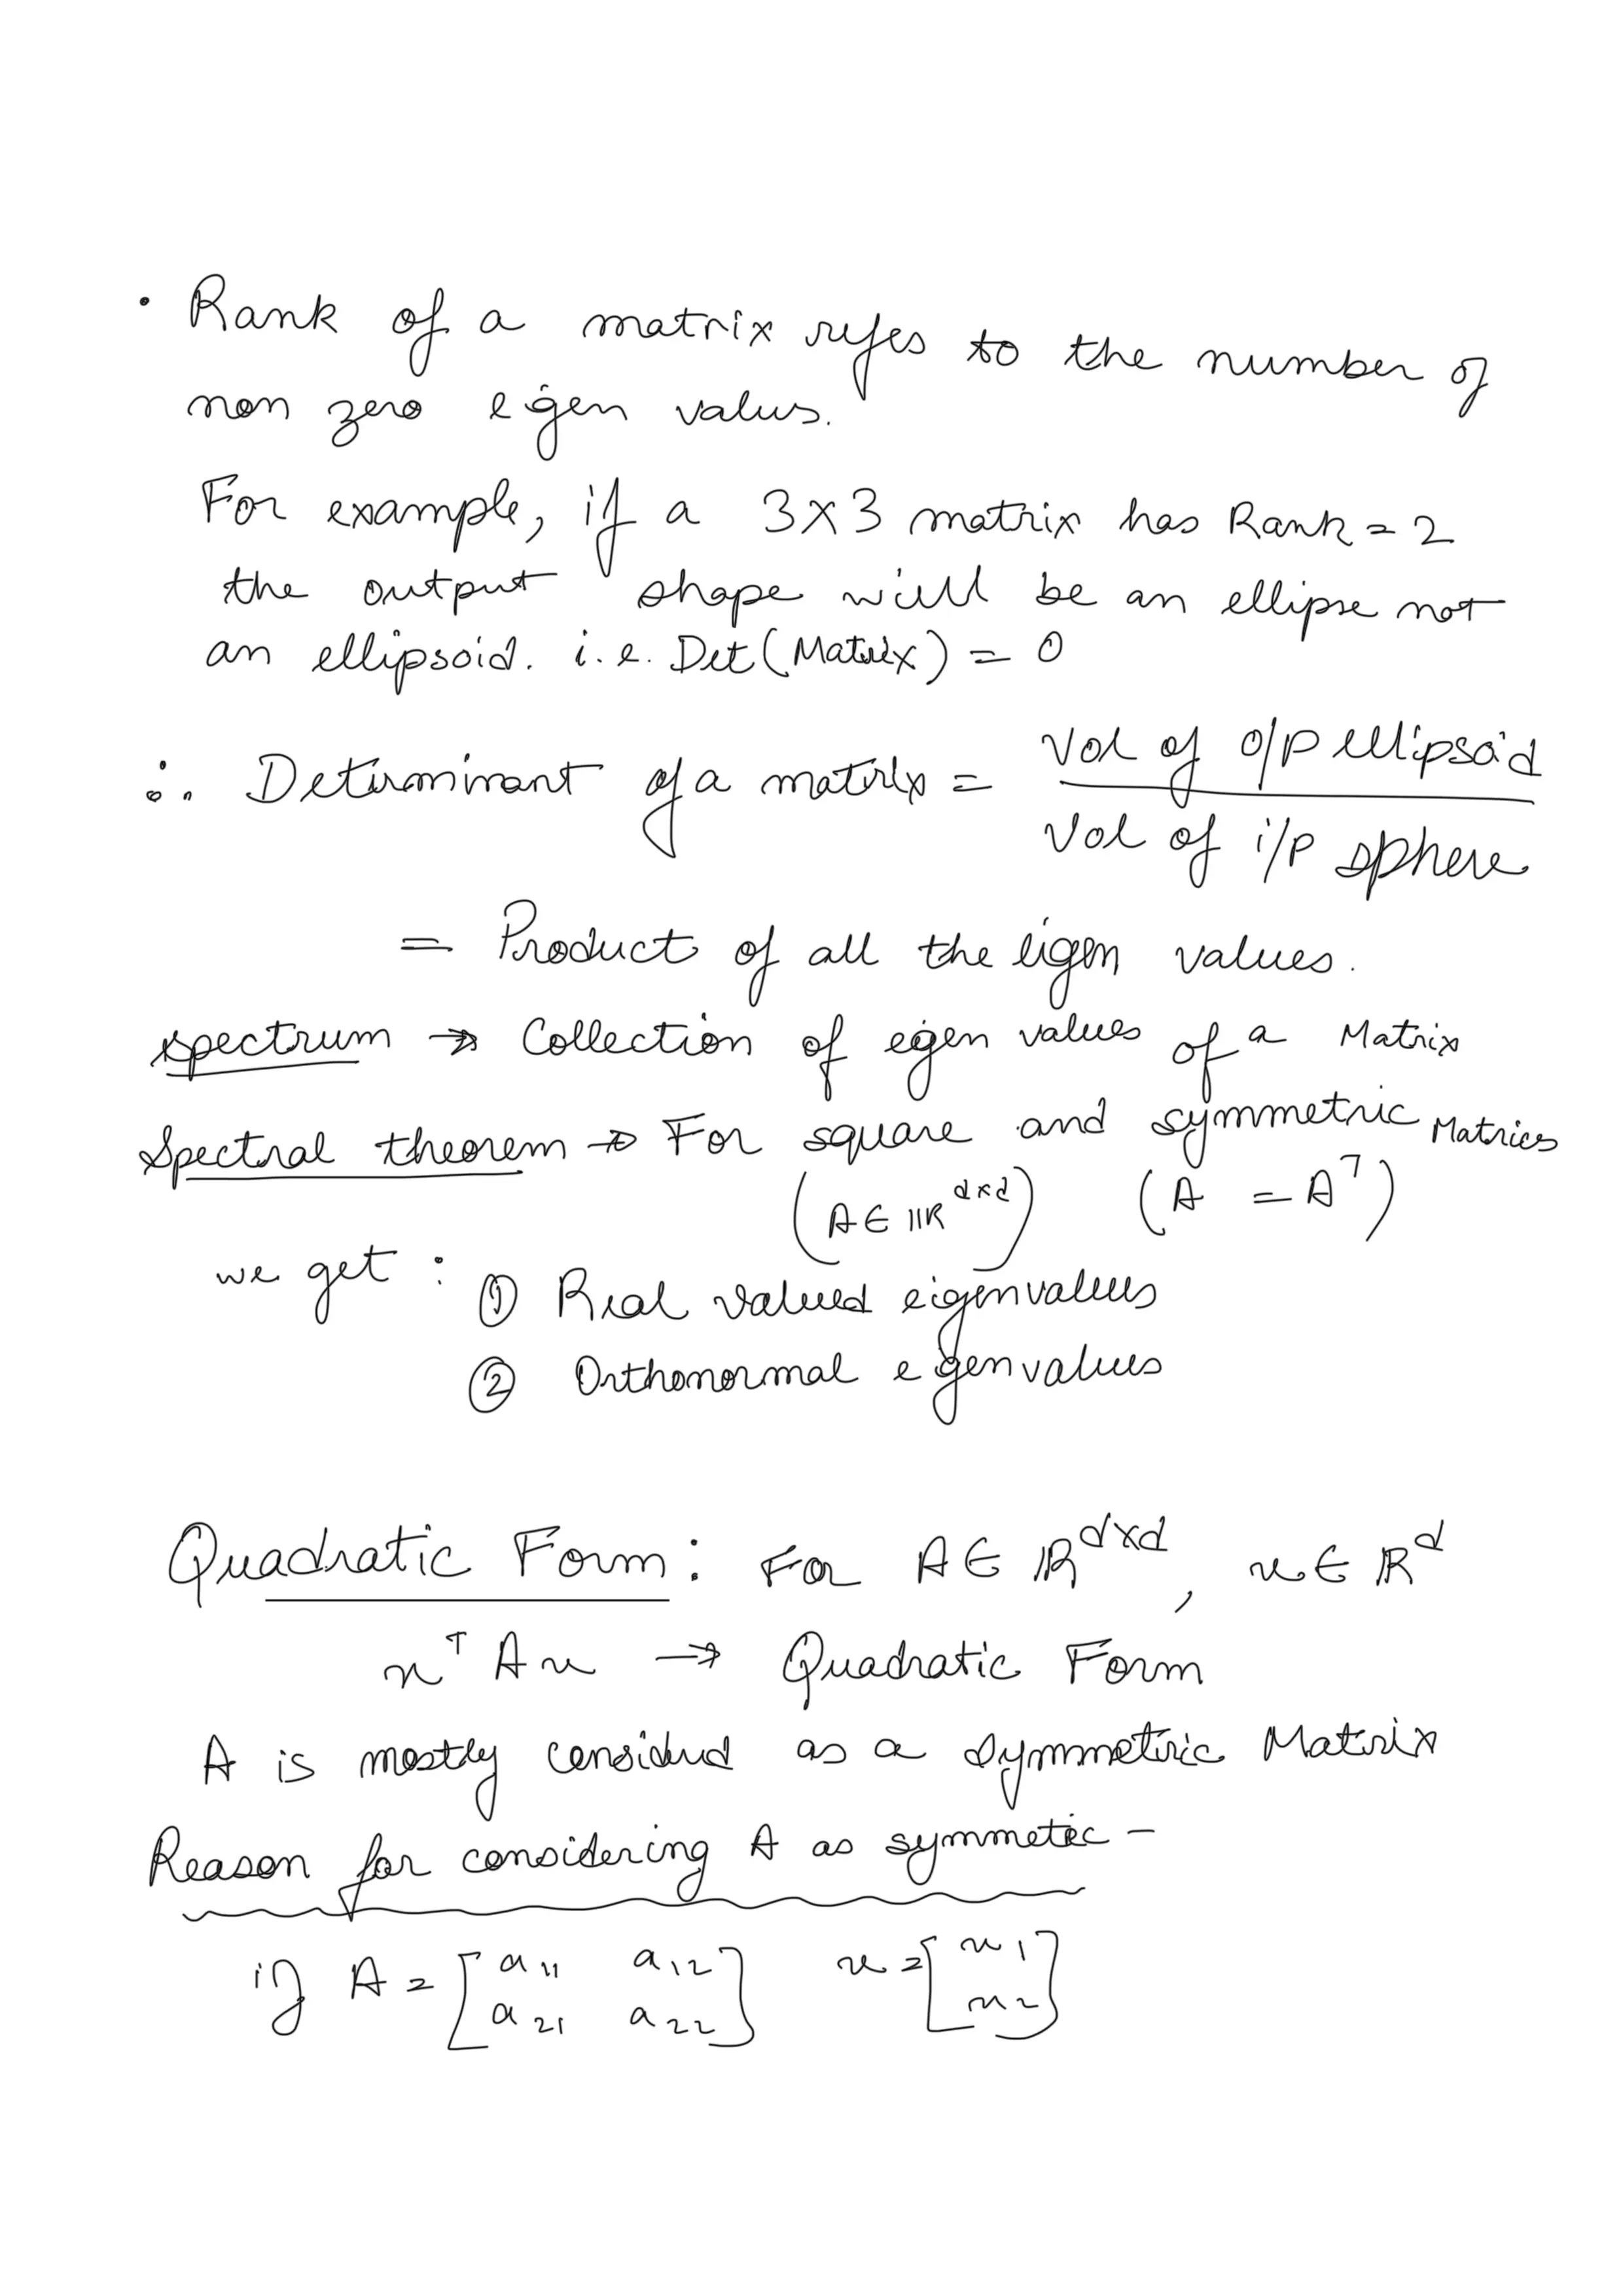 · Rank of a matrix refes to the number of
non zero eigen values.
For example, if a 3×3 matrix has Rank = 2
the output shape will be an ellipse not
an ellipsoid. i.e. Det (Matrix) = 0
∴ Determinant of a matrix = Vol of o/p ellipsoid
Vol of i/p sphere
= Product of all the eigen values.
spectrum → Collection of eigen values of a Matrix
Spectral theorem → For square and symmetric Matrices
(A ∈ ℝ^{d×d}) (A = A^T)
we get : ① Real valued eigenvalues
② Orthonormal eigenvalues
Quadratic Form : For A ∈ ℝ^{d×d}, x ∈ ℝ^d
x^T A x → Quadratic Form
A is mostly considered as a symmetric Matrix
Reason for considering A as symmetric -
if A = [a₁₁ a₁₂ x = [x₁
a₂₁ a₂₂] x₂]